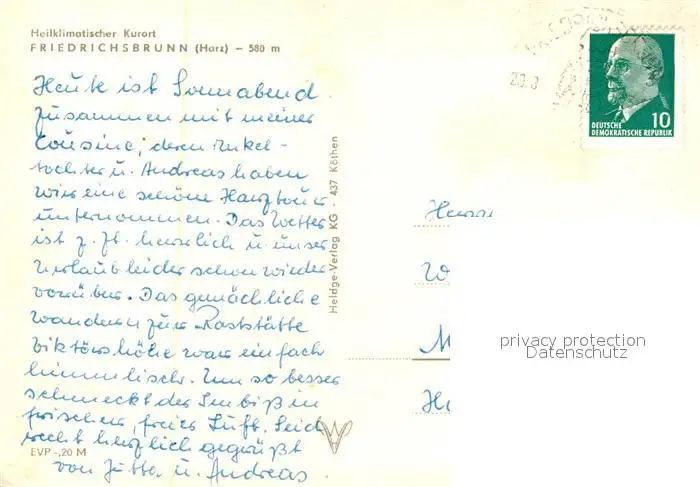 Heilklimatischer Kurort
FRIEDRICHSBRUNN (Harz) – 580 m
Heute ist Sonnabend.
Zusammen mit meiner
Cousine, deren Enkel-
tochter u. Andreas haben
wir eine schöne Harztour
unternommen. Das Wetter
ist z. Zt. herrlich u. unser
Urlaub leider schon wieder
vorüber. Das gemächliche
wandern zur Raststätte
Viktorshöhe war einfach
himmlisch. Um so besser
schmeckt der Imbiß in
frischer, freier Luft. Seid
recht herzlich gegrüßt
von Jutta u. Andreas.
EVP -,20 M
Heldge-Verlag KG - 437 Köthen
20.8
10
DEUTSCHE
DEMOKRATISCHE REPUBLIK
privacy protection
Datenschutz